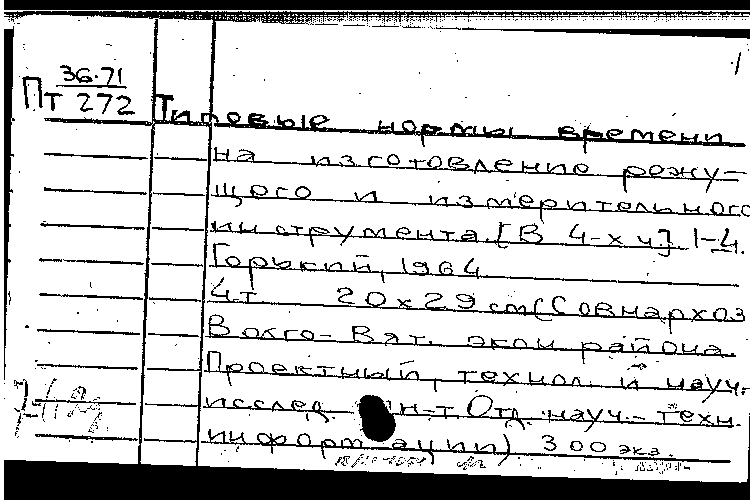 36.71
Пт 272
1
Типовые нормы времени
на изготовление режу-
щего и измерительного
инструмента. [В 4-х ч]. 1-4.
Горький, 1964
4т 20х29 см (Совнархоз
Волго-Вят. экон района.
Проектный, технол. и науч.
исслед. ин-т Отд. науч.-техн.
информации) 300 экз.